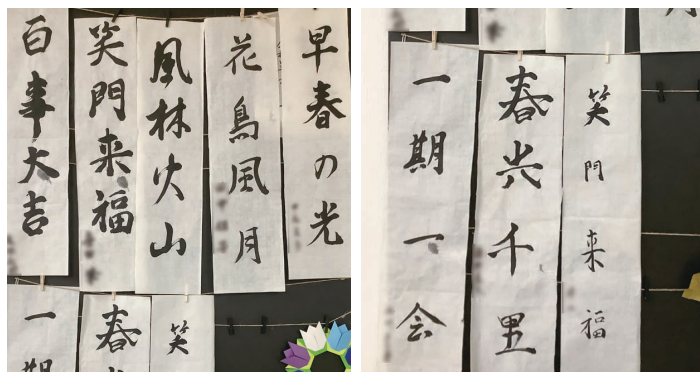 早春の光
花鳥風月
風林火山
笑門来福
百事大吉
笑
春
一期
笑門来福
春光千里
一期一会